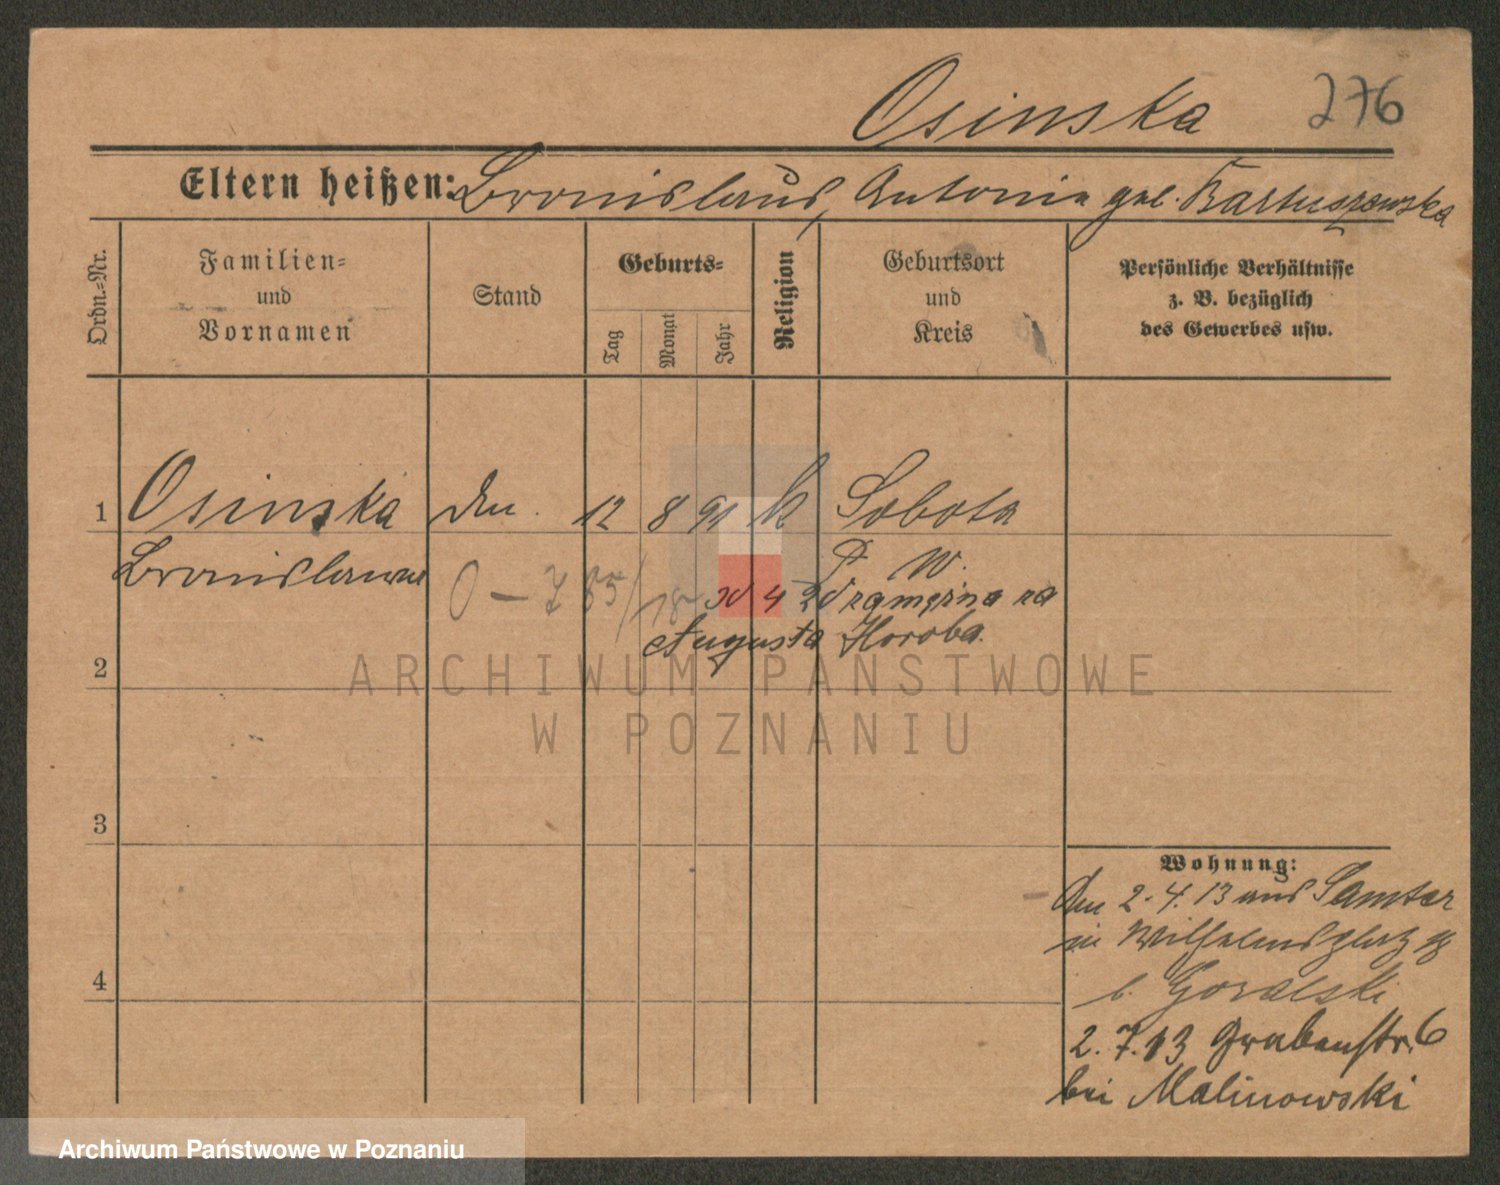 Osinska 276
Eltern heißen: Bronislaus, Antonie geb. Kartuszewska
Ordn.-Nr.
Familien-
und
Vornamen
Stand
Geburts-
Tag
Monat
Jahr
Religion
Geburtsort
und
Kreis
Persönliche Verhältnisse
z. B. bezüglich
des Gewerbes usw.
1 Osinska 12 8 91 k Sobota
Bronislawa P. W.
0 — 785/18
Augusta Horoba.
2
3
4
Wohnung:
Den 2.4.13 aus Samter
in Wilhelmsplatz
b. Goralski
2.7.13 Grabenstr. 6
bei Malinowski
ARCHIWUM PAŃSTWOWE
W POZNANIU
Archiwum Państwowe w Poznaniu